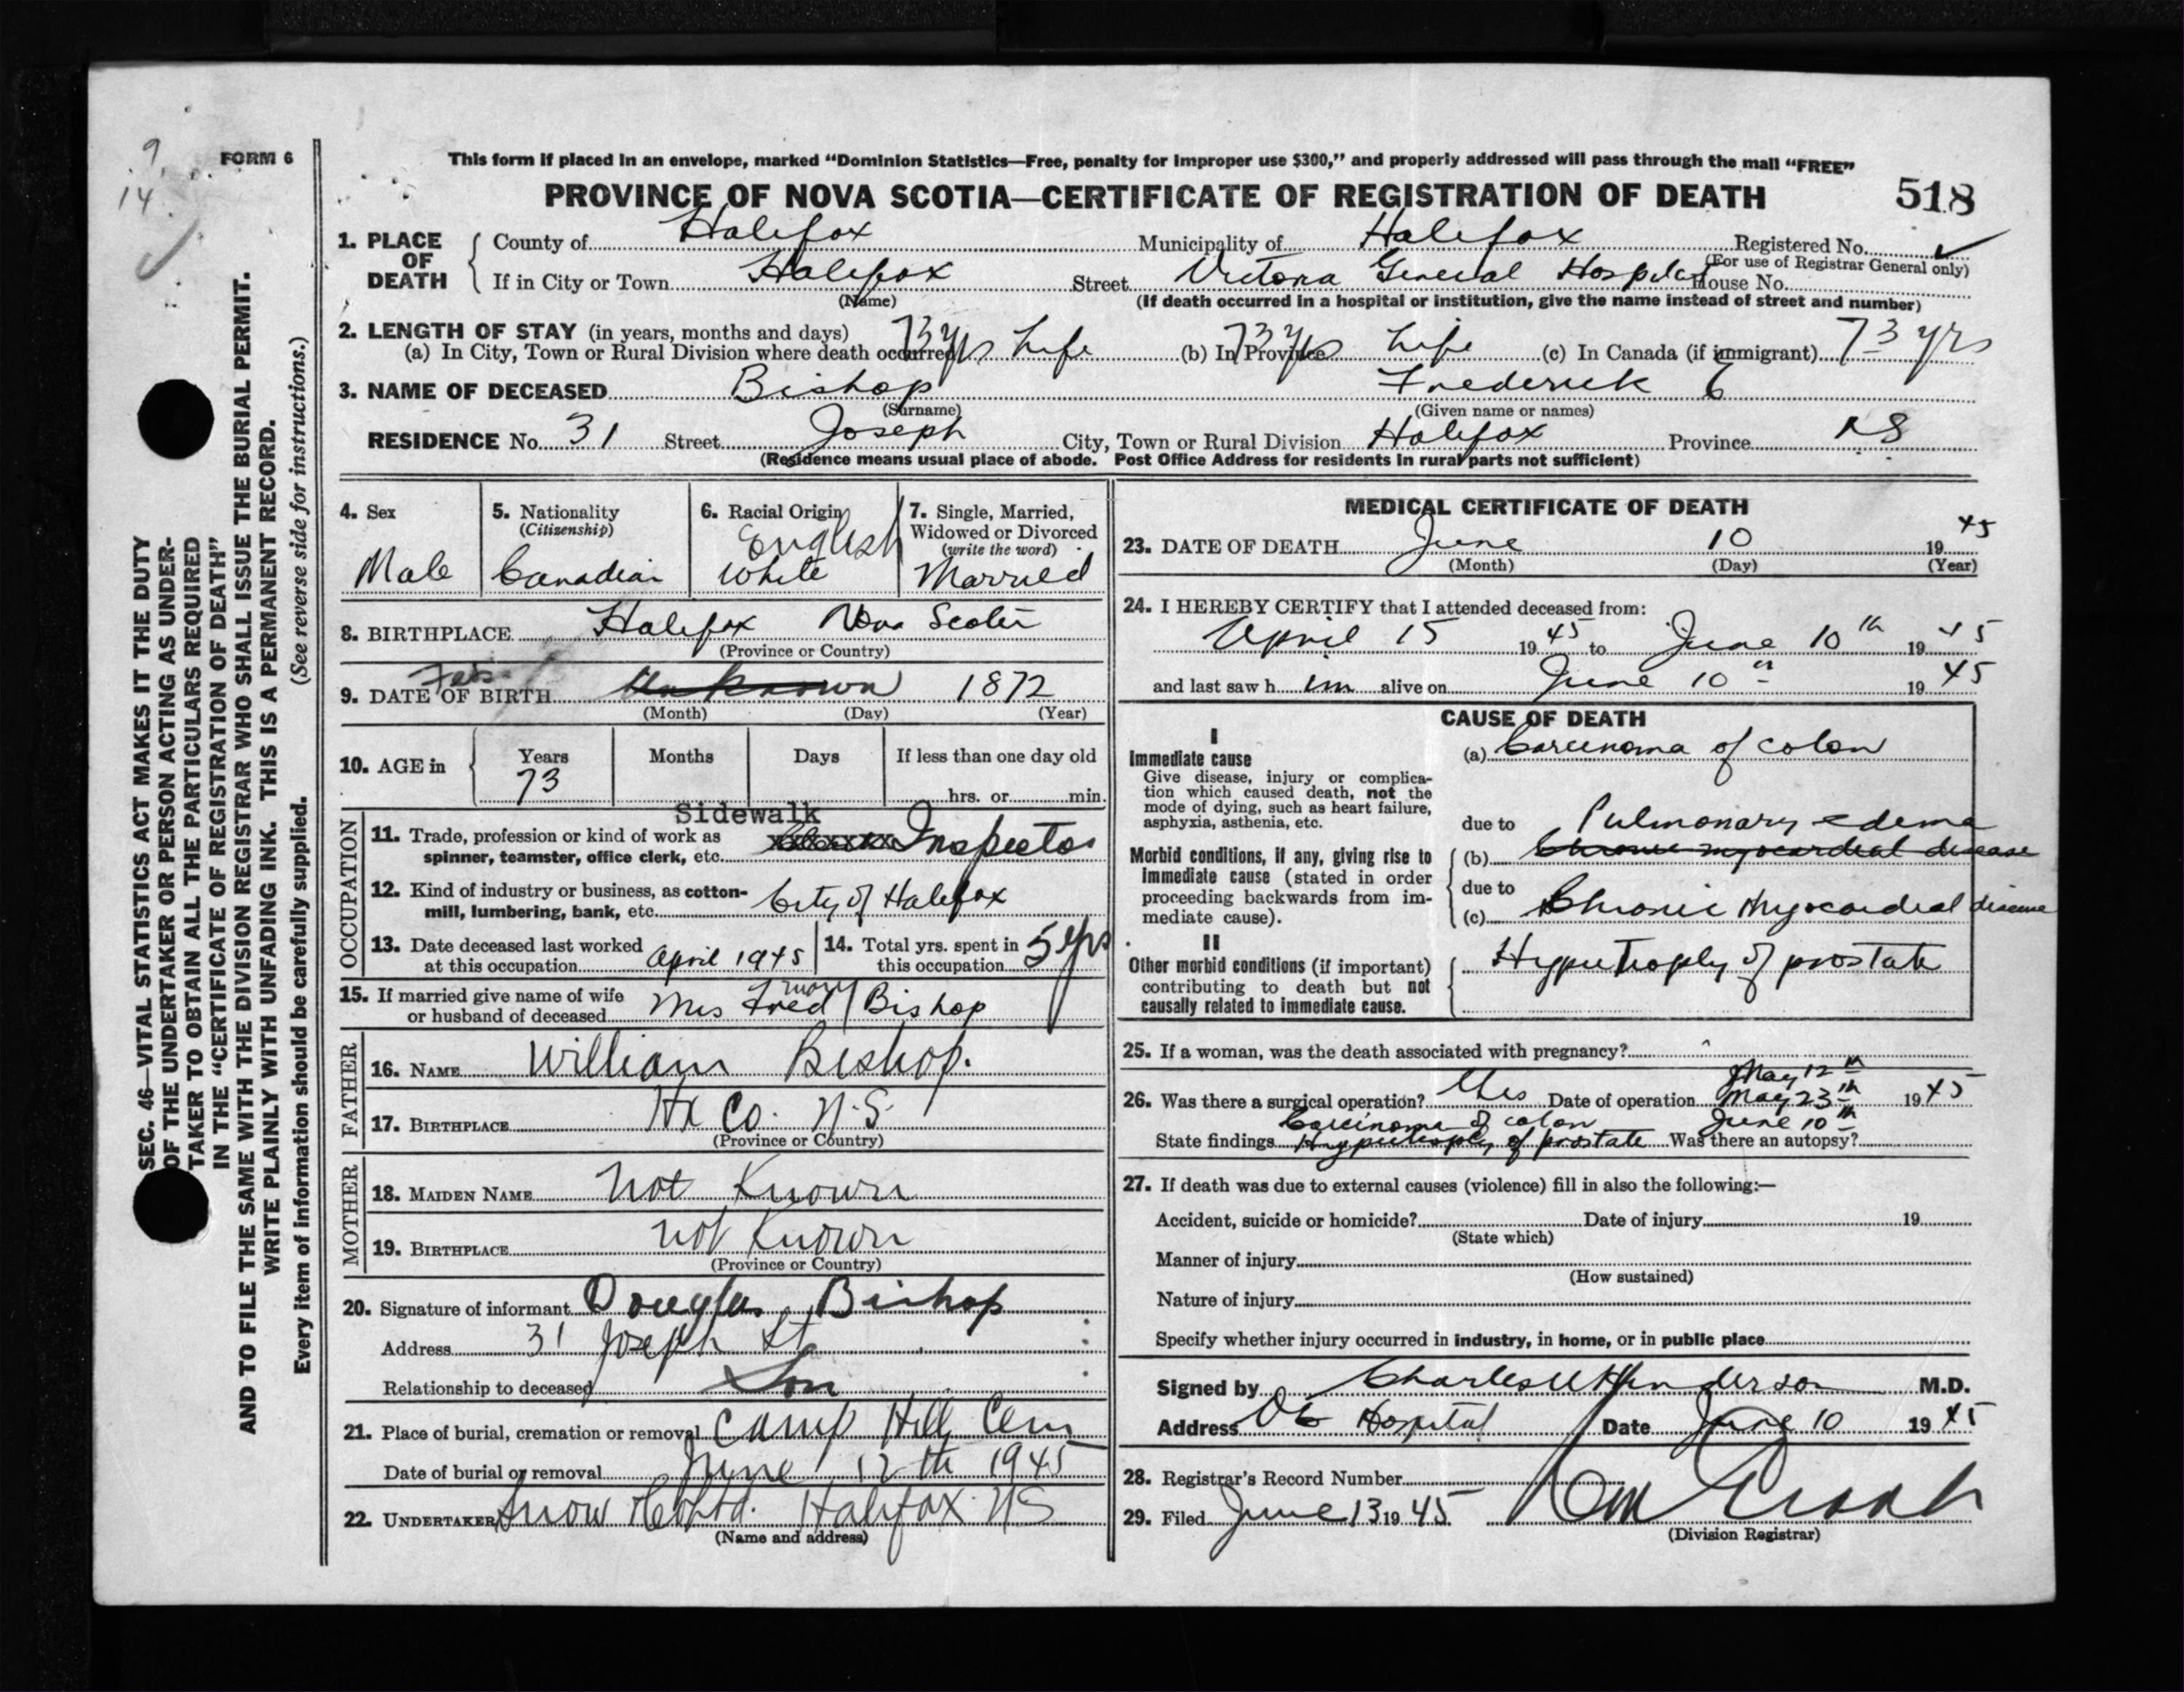 9
14
FORM 6
This form if placed in an envelope, marked “Dominion Statistics—Free, penalty for improper use $300,” and properly addressed will pass through the mail “FREE”
PROVINCE OF NOVA SCOTIA—CERTIFICATE OF REGISTRATION OF DEATH
518
1. PLACE OF DEATH { County of Halifax Municipality of Halifax Registered No. ✓
(For use of Registrar General only)
If in City or Town Halifax Street Victoria General Hospital House No.
(Name) (If death occurred in a hospital or institution, give the name instead of street and number)
2. LENGTH OF STAY (in years, months and days)
(a) In City, Town or Rural Division where death occurred 73 yrs Life (b) In Province 73 yrs Life (c) In Canada (if immigrant) 73 yrs
3. NAME OF DECEASED Bishop Frederick E
(Surname) (Given name or names)
RESIDENCE No. 31 Street Joseph City, Town or Rural Division Halifax Province NS
(Residence means usual place of abode. Post Office Address for residents in rural parts not sufficient)
4. Sex
Male
5. Nationality
(Citizenship)
Canadian
6. Racial Origin
English
White
7. Single, Married,
Widowed or Divorced
(write the word)
Married
8. BIRTHPLACE Halifax Nova Scotia
(Province or Country)
Feb.
9. DATE OF BIRTH Unknown 1872
(Month) (Day) (Year)
10. AGE in { Years Months Days If less than one day old
73 hrs. or min.
OCCUPATION
Sidewalk
11. Trade, profession or kind of work as
spinner, teamster, office clerk, etc. Inspector
12. Kind of industry or business, as cotton-
mill, lumbering, bank, etc. City of Halifax
13. Date deceased last worked
at this occupation April 1945
14. Total yrs. spent in
this occupation 5 yrs
15. If married give name of wife
or husband of deceased Mrs Fred Mary Bishop
FATHER
16. NAME William Bishop.
17. BIRTHPLACE Hx Co. N.S.
(Province or Country)
MOTHER
18. MAIDEN NAME Not Known
19. BIRTHPLACE not Known
(Province or Country)
20. Signature of informant Douglas Bishop
Address 31 Joseph St
Relationship to deceased Son
21. Place of burial, cremation or removal Camp Hill Cem
Date of burial or removal June 12th 1945
22. UNDERTAKER Snow & Co Ltd. Halifax NS
(Name and address)
MEDICAL CERTIFICATE OF DEATH
23. DATE OF DEATH June 10 1945
(Month) (Day) (Year)
24. I HEREBY CERTIFY that I attended deceased from:
April 15 1945 to June 10th 1945
and last saw him alive on June 10th 1945
CAUSE OF DEATH
I
Immediate cause
Give disease, injury or complica-
tion which caused death, not the
mode of dying, such as heart failure,
asphyxia, asthenia, etc.
(a) Carcinoma of colon
due to Pulmonary edema
Morbid conditions, if any, giving rise to
immediate cause (stated in order
proceeding backwards from im-
mediate cause).
(b) Chronic myocardial disease
due to
(c) Chronic Myocardial disease
II
Other morbid conditions (if important)
contributing to death but not
causally related to immediate cause.
Hypertrophy of prostate
25. If a woman, was the death associated with pregnancy?
May 12th
26. Was there a surgical operation? Yes Date of operation May 23th 1945
Carcinoma of colon June 10th
State findings Hypertrophy of prostate Was there an autopsy?
27. If death was due to external causes (violence) fill in also the following:—
Accident, suicide or homicide? Date of injury 19
(State which)
Manner of injury
(How sustained)
Nature of injury
Specify whether injury occurred in industry, in home, or in public place
Signed by Charles W Henderson M.D.
Address VG Hospital Date June 10 1945
28. Registrar's Record Number
29. Filed June 13 1945
(Division Registrar)
SEC. 46—VITAL STATISTICS ACT MAKES IT THE DUTY
OF THE UNDERTAKER OR PERSON ACTING AS UNDER-
TAKER TO OBTAIN ALL THE PARTICULARS REQUIRED
IN THE “CERTIFICATE OF REGISTRATION OF DEATH”
AND TO FILE THE SAME WITH THE DIVISION REGISTRAR WHO SHALL ISSUE THE BURIAL PERMIT.
WRITE PLAINLY WITH UNFADING INK. THIS IS A PERMANENT RECORD.
Every item of information should be carefully supplied. (See reverse side for instructions.)